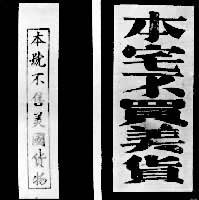 本宅不買美貨
本號不售美國貨物